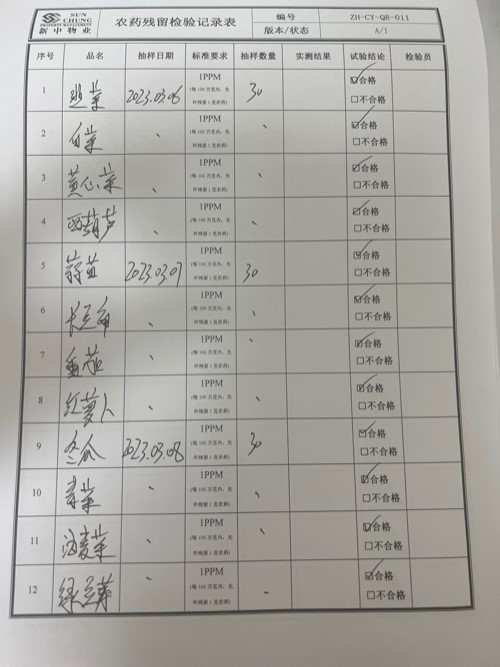 SUN CHUNG
PROPERTY MANAGEMENT
新中物业
农药残留检验记录表
编号 ZH-CY-QR-011
版本/状态 A/1
序号 品名 抽样日期 标准要求 抽样数量 实测结果 试验结论 检验员
1 韭菜 2023.03.06 1PPM (每100万克内,允许残留1克农药) 30 ☑合格 □不合格
2 白菜 、 1PPM (每100万克内,允许残留1克农药) 、 ☑合格 □不合格
3 黄心菜 、 1PPM (每100万克内,允许残留1克农药) 、 ☑合格 □不合格
4 西葫芦 、 1PPM (每100万克内,允许残留1克农药) 、 ☑合格 □不合格
5 蒜苗 2023.03.07 1PPM (每100万克内,允许残留1克农药) 30 ☑合格 □不合格
6 长豆角 、 1PPM (每100万克内,允许残留1克农药) 、 ☑合格 □不合格
7 番茄 、 1PPM (每100万克内,允许残留1克农药) 、 ☑合格 □不合格
8 红萝卜 、 1PPM (每100万克内,允许残留1克农药) 、 ☑合格 □不合格
9 冬瓜 2023.03.08 1PPM (每100万克内,允许残留1克农药) 30 ☑合格 □不合格
10 青菜 、 1PPM (每100万克内,允许残留1克农药) 、 ☑合格 □不合格
11 油麦菜 、 1PPM (每100万克内,允许残留1克农药) 、 ☑合格 □不合格
12 绿豆芽 、 1PPM (每100万克内,允许残留1克农药) 、 ☑合格 □不合格